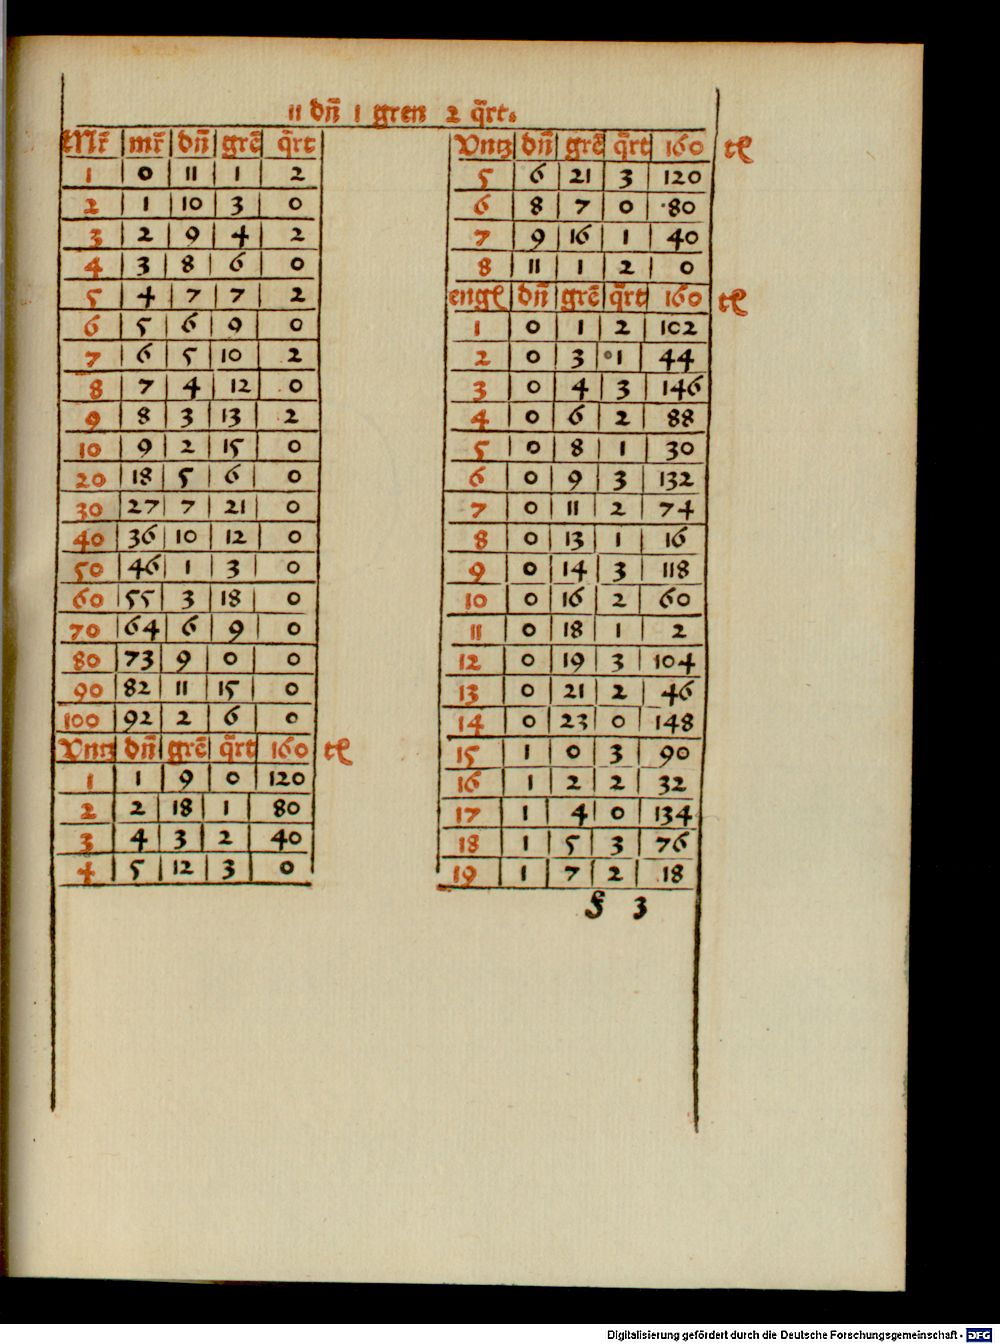 11 dn̄ 1 gren 2 q̄rt.
Mr̄ mr̄ dn̄ grē q̄rt
1 0 11 1 2
2 1 10 3 0
3 2 9 4 2
4 3 8 6 0
5 4 7 7 2
6 5 6 9 0
7 6 5 10 2
8 7 4 12 0
9 8 3 13 2
10 9 2 15 0
20 18 5 6 0
30 27 7 21 0
40 36 10 12 0
50 46 1 3 0
60 55 3 18 0
70 64 6 9 0
80 73 9 0 0
90 82 11 15 0
100 92 2 6 0
Vntz dn̄ grē q̄rt 160 tl
1 1 9 0 120
2 2 18 1 80
3 4 3 2 40
4 5 12 3 0
Vntz dn̄ grē q̄rt 160 tl
5 6 21 3 120
6 8 7 0 80
7 9 16 1 40
8 11 1 2 0
engl dn̄ grē q̄rt 160 tl
1 0 1 2 102
2 0 3 1 44
3 0 4 3 146
4 0 6 2 88
5 0 8 1 30
6 0 9 3 132
7 0 11 2 74
8 0 13 1 16
9 0 14 3 118
10 0 16 2 60
11 0 18 1 2
12 0 19 3 104
13 0 21 2 46
14 0 23 0 148
15 1 0 3 90
16 1 2 2 32
17 1 4 0 134
18 1 5 3 76
19 1 7 2 18
f 3
Digitalisierung gefördert durch die Deutsche Forschungsgemeinschaft - DFG